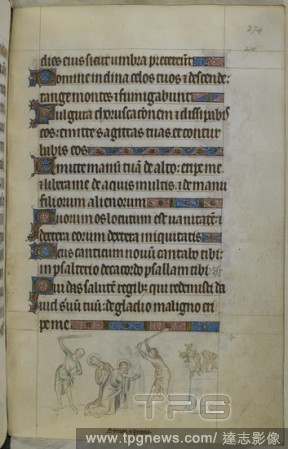 274
dies eius sicut umbra pretereūt
Domine inclina celos tuos & descende:
tange montes & fumigabunt
Fulgura choruscatōnem & dissipabis
eos: emitte sagittas tuas et contur
babis eos
Emitte manū tuā de alto: eripe me
& libera me de aquis multis. & de manu
filiorum alienorum
Quorum os locutum est uanitatē: &
dextera eorum dextera iniquitatis
Deus canticum nouū cantabo tibi:
in psalterio decacordo psallam tibi
Qui das salutē regib; qui redemisti da
uid seruū tuū: de gladio maligno eri
pe me
TPG
www.tpgnews.com/ 達志影像